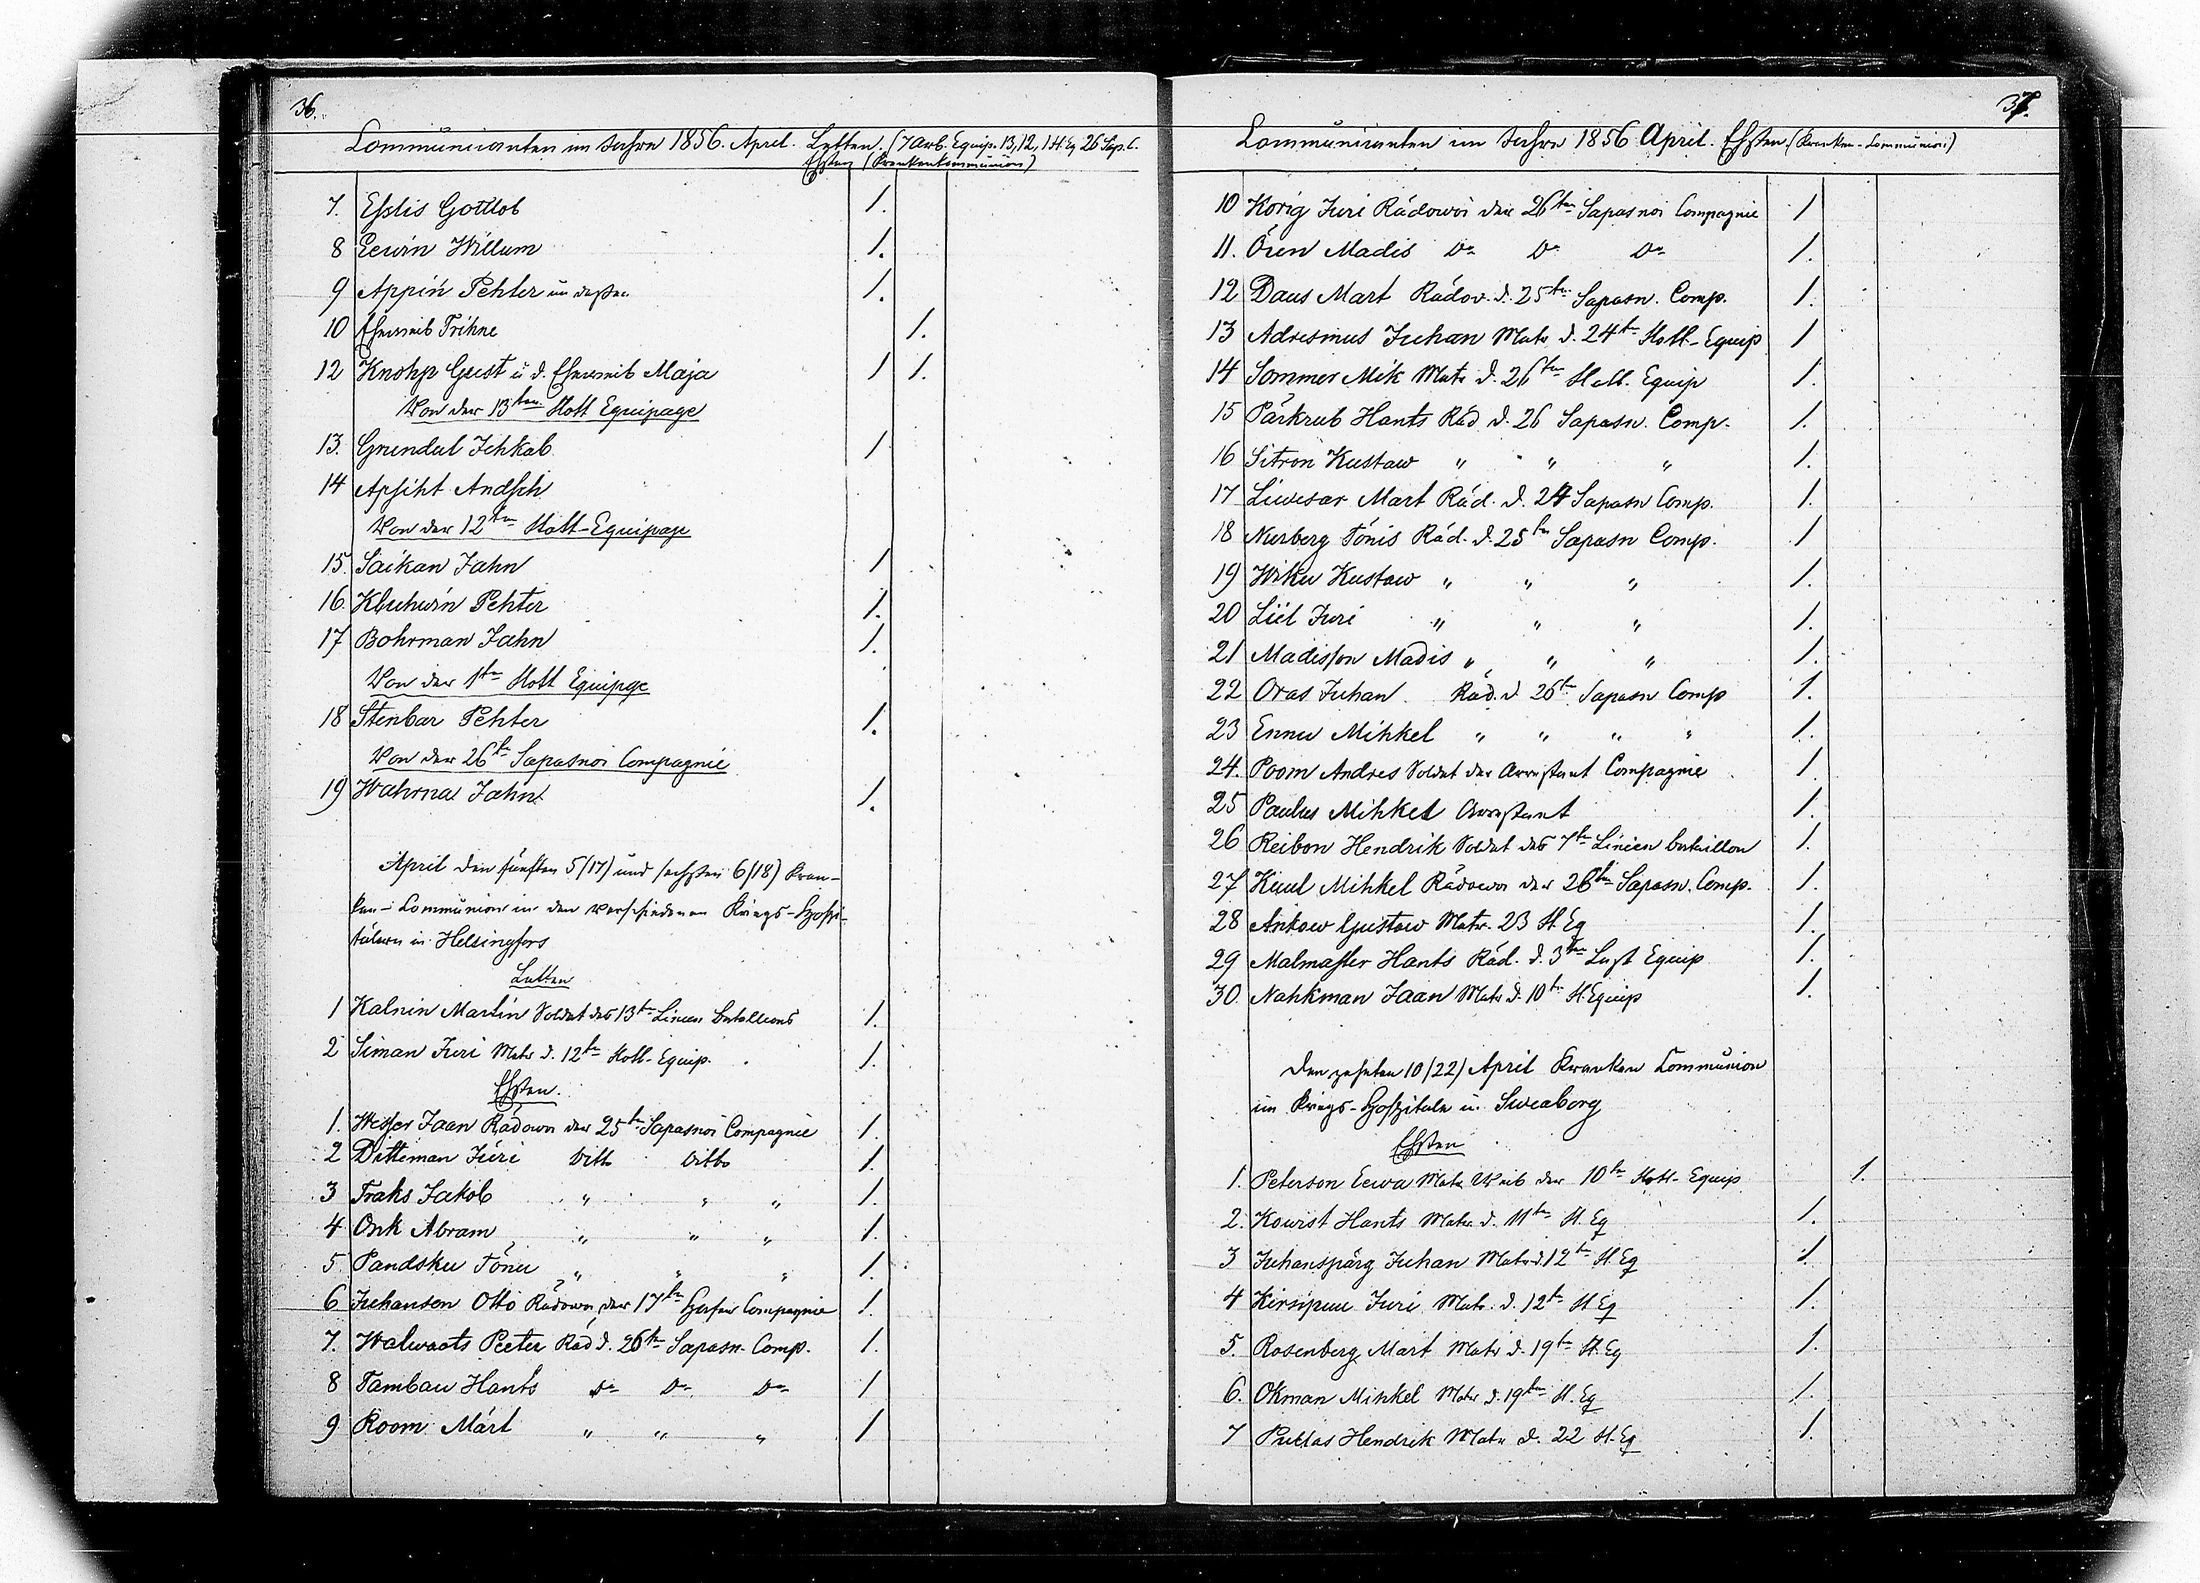 36.
Communicanten im Jahre 1856. April. Letten. (7 Arb. Equip. 13, 12, 1 H. Eq 26 Sap. C.
Ehsten (Krankenkommunion)
7. Ehstis Gottlob 1.
8 Leiwin Willum 1.
9 Appin Pehter u dessen 1.
10 Eheweib Trihne 1.
12 Knohp Gust u d. Eheweib Maja 1 1.
Von der 13ten Flott Equipage
13. Grundul Jehkab 1
14 Apsiht Andsch
Von der 12ten Flott-Equipage
15. Saikan Jahn 1
16. Kluhwin Pehter 1.
17 Bohrman Jahn 1.
Von der 1ten Flott Equipge
18 Stenbar Pehter 1.
Von der 26te Sapasnoi Compagnie
19 Wahrna Jahn 1.
April den fünften 5/17) und sechsten 6/18) Kran-
ken-Communion in den verschiedenen Kriegs-Hospi-
tälern in Helsingfors
Letten
1 Kalnin Martin Soldat des 13ten Linien Bataillons 1.
2 Siman Juri Matr d. 12te Flott-Equip. 1.
Ehsten.
1. Wesser Jaan Rädowoi der 25te Sapasnoi Compagnie 1.
2 Ditteman Jüri Ditto Ditto 1.
3 Traks Jakob " " " 1.
4 Onk Abram " " " 1.
5. Pandsku Tönu " " " 1.
6 Juhansen Otto Rädowoi der 17te Hafen Compagnie 1.
7. Walwaots Peeter Räd d. 26te Sapasn. Comp. 1.
8 Tambau Hants Do Do Do 1
9 Room Märt " " " 1
37.
Communicanten im Jahre 1856 April. Ehsten. (Kranken-Communion)
10 Korig Juri Rädowoi der 26ten Sapasnoi Compagnie 1
11. Ören Madis Do Do Do 1.
12 Daus Mart Rädov. d. 25te Sapasn. Comp. 1.
13 Adresmus Juhan Matr d. 24te Flott-Equip 1
14 Sommer Mik Matr d. 26ten Flott. Equip 1.
15 Pärkrub Hants Räd d. 26 Sapasn. Comp. 1.
16 Sitron Kustaw " " " 1.
17 Liwesar Mart Räd. d. 24 Sapasn Comp. 1.
18 Nurberg Tönis Räd. d. 25te Sapasn Comp. 1
19 Wiku Kustaw " " " 1.
20 Liil Juri " " " 1.
21 Madisson Madis " " " 1.
22 Oras Juhan Räd. d 26te Sapasn Comp 1.
23 Ennu Mihkel " " " " 1.
24. Poom Andres Soldat der Arrestant Compagnie 1
25 Paulus Mihkel Arrestant 1.
26 Reibon Hendrik Soldat des 7te Linien bataillon 1.
27 Kuul Mihkel Rädowoi der 26te Sapasn. Comp. 1.
28 Ankow Gustaw Matr. 23 Fl. Eq 1.
29 Malmasster Hants Räd. d. 3ten Last Equip 1.
30. Nahkman Jaan Matr d. 10te Fl. Equip 1.
Den zehnten 10/22) April Kranken Communion
im Kriegs-Hospitale in Sweaborg
Ehsten
1. Peterson Eewa Matr Weib der 10te Flott-Equip 1.
2. Kowist Hants Matr d. 11te Fl. Eq 1.
3 Juhanspärg Juhan Matr d. 12te Fl. Eq 1
4 Kirsipuu Juri Matr. d. 12te Fl. Eq 1.
5. Rosenberg Mart Matr d. 19te Fl. Eq 1.
6. Okman Mihkel Matr d. 19te Fl. Eq 1.
7 Pullas Hendrik Matr d. 22 Fl. Eq 1.